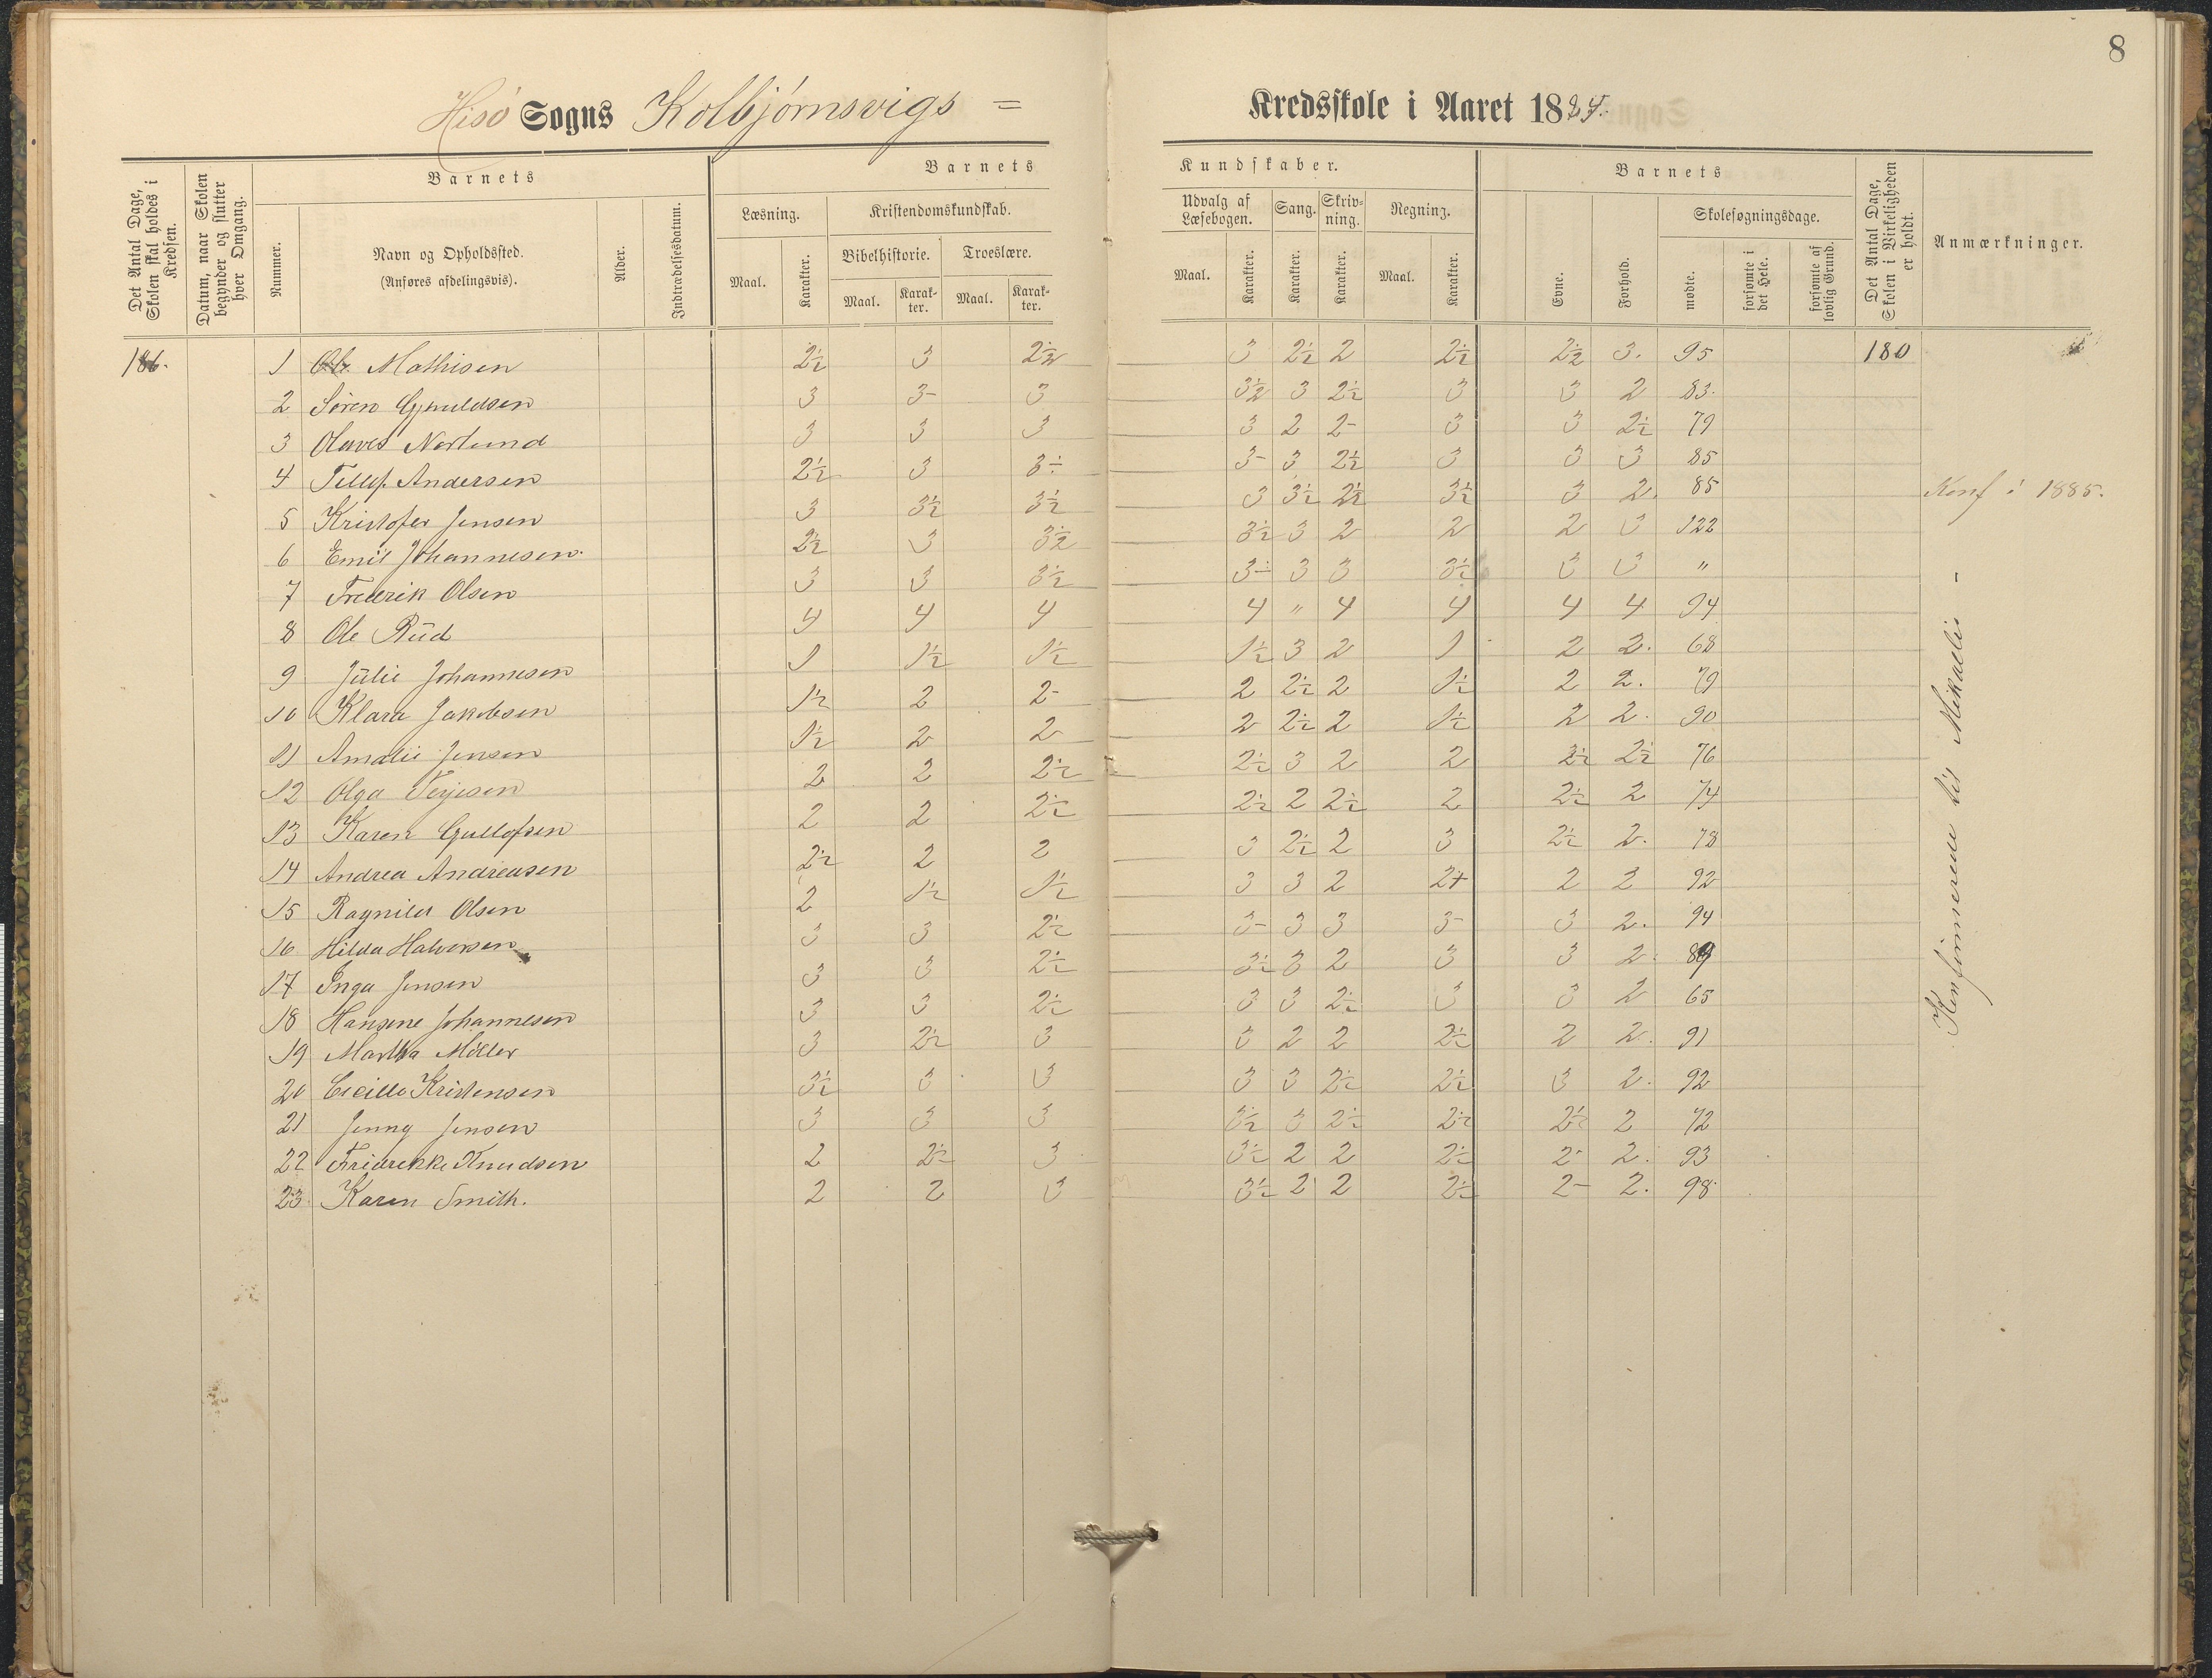 8
Hisö Sogns Kolbjörnsvigs =
Kredsskole i Aaret 1884.
Det Antal Dage, Skolen skal holdes i Kredsen.
Datum, naar Skolen begynder og slutter hver Omgang.
Barnets
Nummer.
Navn og Opholdssted.
(Anføres afdelingsvis).
Alder.
Indtrædelsesdatum.
Barnets Kundskaber.
Læsning.
Maal.
Karakter.
Kristendomskundskab.
Bibelhistorie.
Maal.
Karakter.
Troeslære.
Maal.
Karakter.
Udvalg af Læsebogen.
Maal.
Karakter.
Sang.
Karakter.
Skrivning.
Karakter.
Regning.
Maal.
Karakter.
Barnets
Evne.
Forhold.
Skolesøgningsdage.
mødte.
forsømte i det Hele.
forsømte af lovlig Grund.
Det Antal Dage, Skolen i Virkeligheden er holdt.
Anmærkninger.
186. 1 Ole Mathisen 2½ 3 2½ 3 2½ 2 2½ 2½ 3. 95 180
2 Sören Gjruldsen 3 3- 3 3½ 3 2½ 3 3 2 83.
3 Olaves Norlund 3 3 3 3 2 2- 3 3 2½ 79
4 Tellef Andersen 2½ 3 3÷ 3- 3 2½ 3 3 3 85
5 Kristofer Jensen 3 3½ 3½ 3 3½ 2½ 3½ 3 2. 85 Konf i 1885.
6 Emil Johannesen. 2½ 3 3½ 3½ 3 2 2 2 3 122
7 Fredrik Olsen 3 3 3½ 3÷ 3 3 3½ 3 3 "
8 Ole Rüd 4 4 4 4 " 4 4 4 4 94
9 Jülie Johannesen 1 1½ 1½ 1½ 3 2 1 2 2. 68
10 Klara Jakobsen 1½ 2 2- 2 2½ 2 1½ 2 2. 79
11 Amalie Jensen 1½ 2 2 2 2½ 2 1½ 2 2. 90
12 Olga Terjesen 2 2 2½ 2½ 3 2 2 2½ 2½ 76
13 Karen Gullofsen 2 2 2½ 2½ 2 2½ 2 2½ 2 74
14 Andrea Andreasen 2½ 2 2 3 2½ 2 3 2½ 2. 78
15 Ragnild Olsen 2 1½ 1½ 3 3 2 2+ 2 2 92
16 Hilda Halvorsen 3 3 2½ 3- 3 3 3- 3 2. 94
17 Inga Jensen 3 3 2½ 3½ 3 2 3 3 2. 89
18 Hansine Johannesen 3 3 2½ 3 3 2½ 3 3 2 65
19 Martha Möller 3 2½ 3 3 2 2 2½ 2 2. 91
20 Cecille Kristensen 3½ 3 3 3 3 2½ 2½ 3 2. 92
21 Jenny Jensen 3 3 3 3½ 3 2½ 2½ 2½ 2 72
22 Fridrekke Knudsen 2 2½ 3 3½ 2 2 2½ 2- 2. 93
23 Karen Smith. 2 2 3 3½ 2 2 2½ 2- 2. 98.
Konfirmerede til Mikaelis -